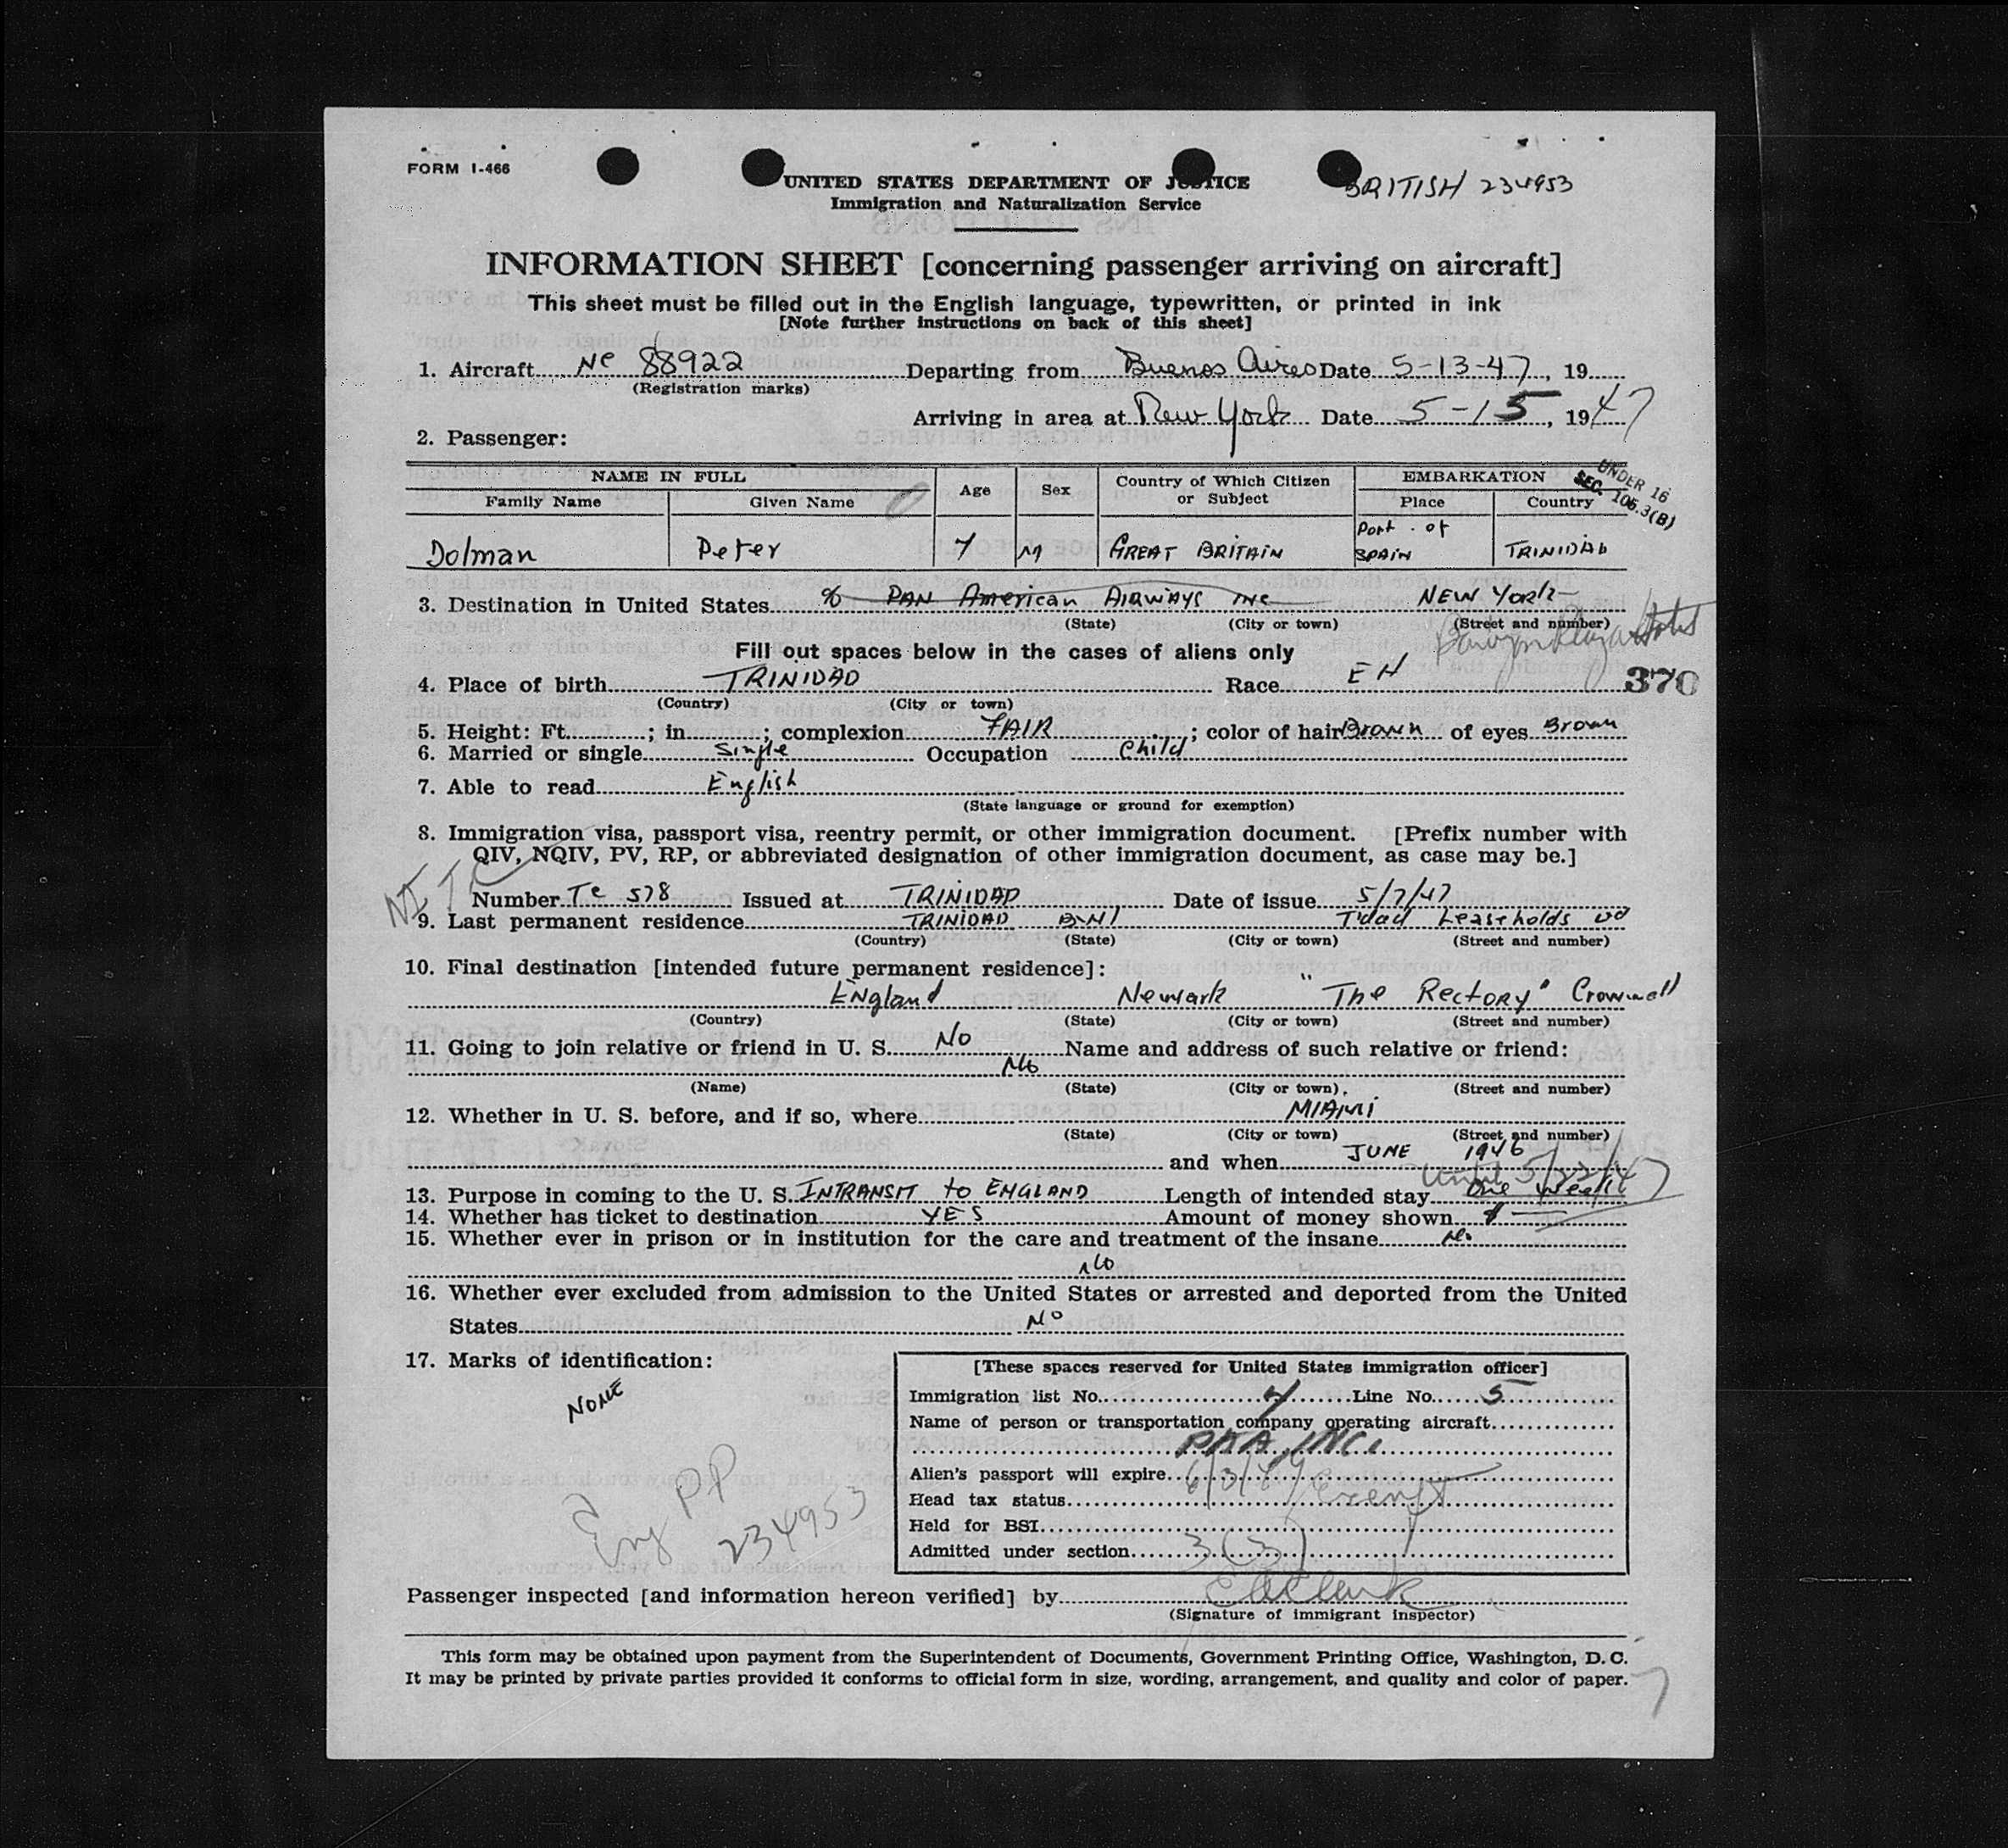 FORM I-466
UNITED STATES DEPARTMENT OF JUSTICE
BRITISH 234953
Immigration and Naturalization Service
INFORMATION SHEET [concerning passenger arriving on aircraft]
This sheet must be filled out in the English language, typewritten, or printed in ink
[Note further instructions on back of this sheet]
1. Aircraft Nc 88922 Departing from Buenos Aires Date 5-13-47, 19
(Registration marks)
Arriving in area at New York Date 5-15, 1947
2. Passenger:
NAME IN FULL Age Sex Country of Which Citizen or Subject EMBARKATION
UNDER 16
SEC. 105.3(B)
Family Name Given Name Place Country
Dolman Peter 7 M GREAT BRITAIN Port of SPAIN TRINIDAD
3. Destination in United States % PAN American AIRWAYS INC NEW YORK
(State) (City or town) (Street and number)
Fill out spaces below in the cases of aliens only
4. Place of birth TRINIDAD Race EH
370
(Country) (City or town)
5. Height: Ft. ; in. ; complexion FAIR ; color of hair Brown of eyes Brown
6. Married or single Single Occupation Child
7. Able to read English
(State language or ground for exemption)
8. Immigration visa, passport visa, reentry permit, or other immigration document. [Prefix number with
QIV, NQIV, PV, RP, or abbreviated designation of other immigration document, as case may be.]
Number Tc 578 Issued at TRINIDAD Date of issue 5/7/47
9. Last permanent residence TRINIDAD BWI T'dad Leaseholds
(Country) (State) (City or town) (Street and number)
10. Final destination [intended future permanent residence]:
England Newark "The Rectory" Cromwell
(Country) (State) (City or town) (Street and number)
11. Going to join relative or friend in U. S. No Name and address of such relative or friend:
No
(Name) (State) (City or town) (Street and number)
12. Whether in U. S. before, and if so, where MIAMI
(State) (City or town) (Street and number)
and when JUNE 1946
until 5/22/47
13. Purpose in coming to the U. S. INTRANSIT to ENGLAND Length of intended stay One week
14. Whether has ticket to destination YES Amount of money shown $ —
15. Whether ever in prison or in institution for the care and treatment of the insane No
No
16. Whether ever excluded from admission to the United States or arrested and deported from the United
States No
17. Marks of identification:
NONE
[These spaces reserved for United States immigration officer]
Immigration list No. 4 Line No. 5
Name of person or transportation company operating aircraft
PAA INC.
Alien's passport will expire 6/3/49
Head tax status Exempt
Held for BSI
Admitted under section 3(3)
Eng PP
234953
Passenger inspected [and information hereon verified] by E A Clark
(Signature of immigrant inspector)
This form may be obtained upon payment from the Superintendent of Documents, Government Printing Office, Washington, D. C.
It may be printed by private parties provided it conforms to official form in size, wording, arrangement, and quality and color of paper.
7